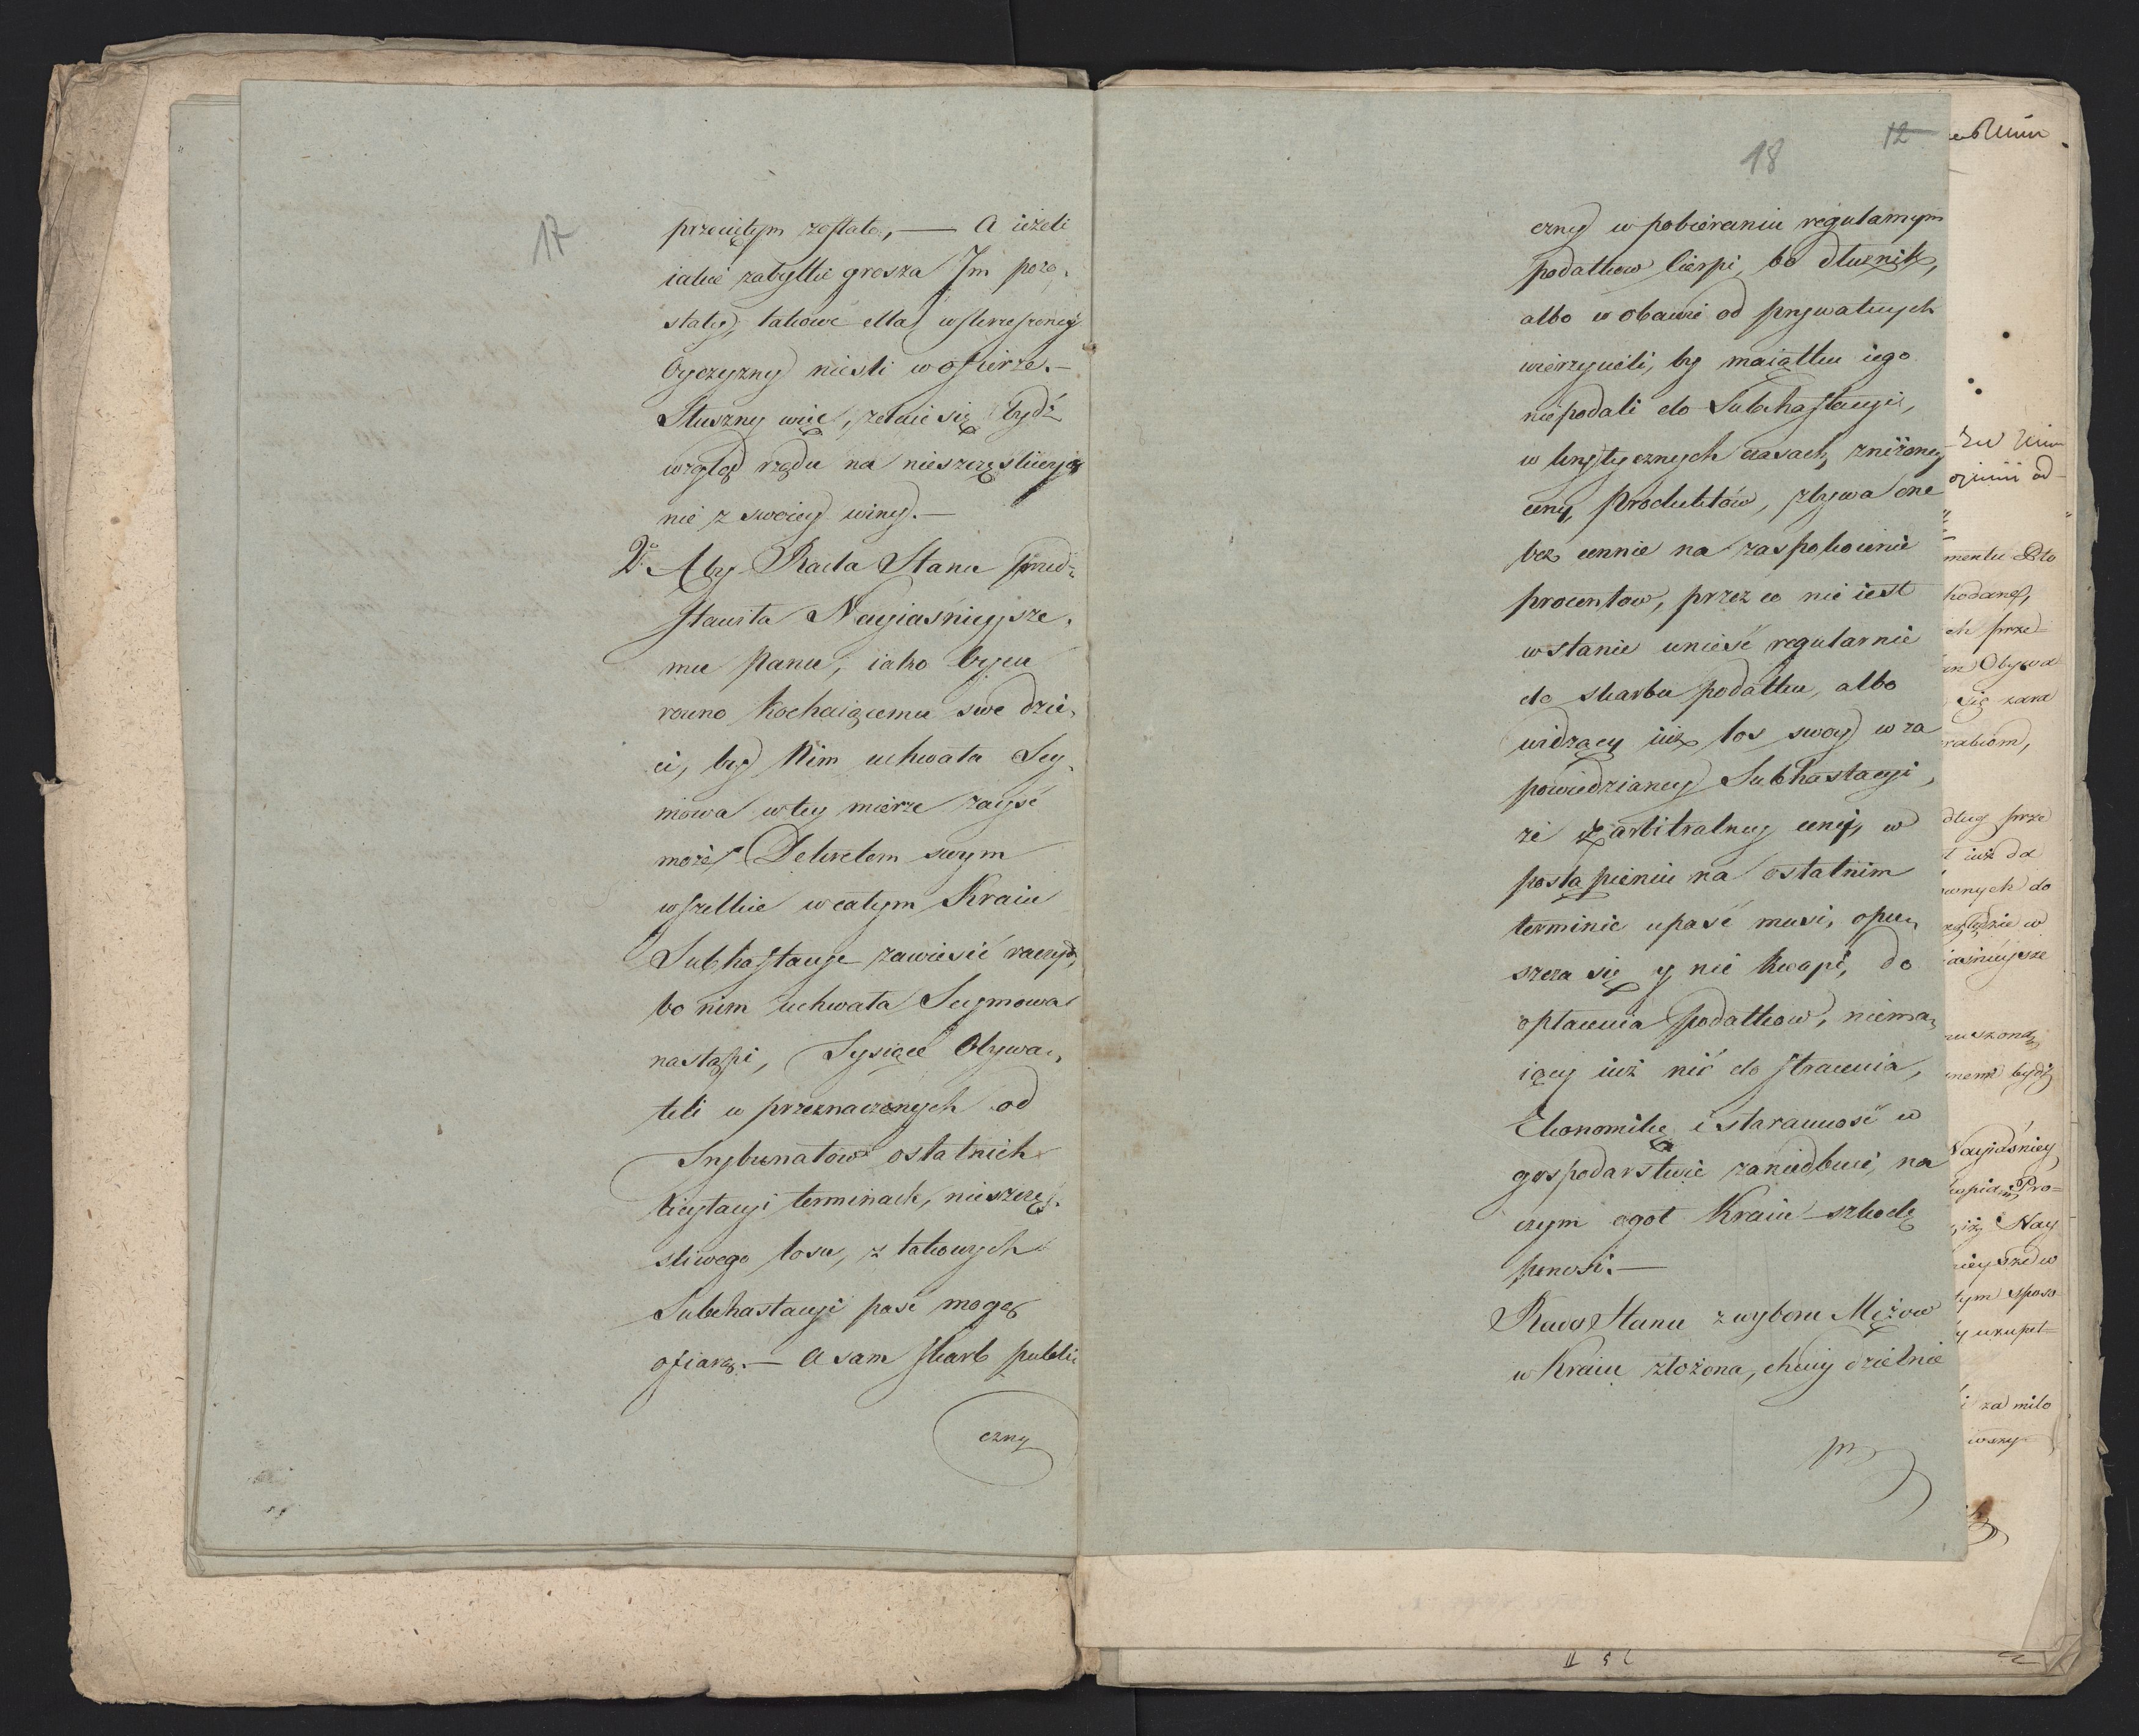 17
przeciętym zostało, — A ieżeli
iakie zabytki grosza Im pozo,
stały, takowe dla wskrzeszoney
Oyczyzny nieśli w ofierze. —
Słuszny więc, zdaie się bydź
wzgląd rządu na nieszczęśliwych
nie z swoiey winy. —
2o Aby Rada Stanu przed-
stawiła Nayiaśnieysze,
mu Panu, iako oycu
rowno kochaiącemu swe dzie,
ci, by Nim uchwała Sey,
mowa w tey mierze zayść
może Dekretem swym
wszelkie w całym Kraiu
Subhastacye zawiesić raczył,
bo nim uchwała Seymowa
nastąpi, Tysiące Obywa,
teli w przeznaczonych od
Trybunałów ostatnich
licytacyi terminach, nieszczę,
śliwego losu, z takowych
Subhastacyi paść mogą
ofiarą. — A sam skarb publi
czny
18
12
czny w pobieraniu regularnym
podatkow cierpi, bo dłużnik,
albo w obawie od prywatnych
wierzycieli, by maiątku iego
niepodali do Subhastacyi,
w krytycznych czasach, zniżoney
ceny Produktów, zbywa one
bez cennie na zaspokoienie
procentow, przez co nie iest
w stanie unieść regularnie
do skarbu podatku, albo
widzący iuż los swoy w za
powiedzianey Subhastacyi,
że z arbitralney ceny, w
postąpieniu na ostatnim
terminie upaść musi, opu,
szcza się y nie kwapi, do
opłacenia podatkow, niema,
iący iuż nic do stracenia,
Ekonomikę i staranność w
gospodarstwie zaniedbuie, na
czym ogół Kraiu szkodę
ponosi. —
Rado Stanu z wyboru Mężow
w Kraiu złożona, chciey dzielnie